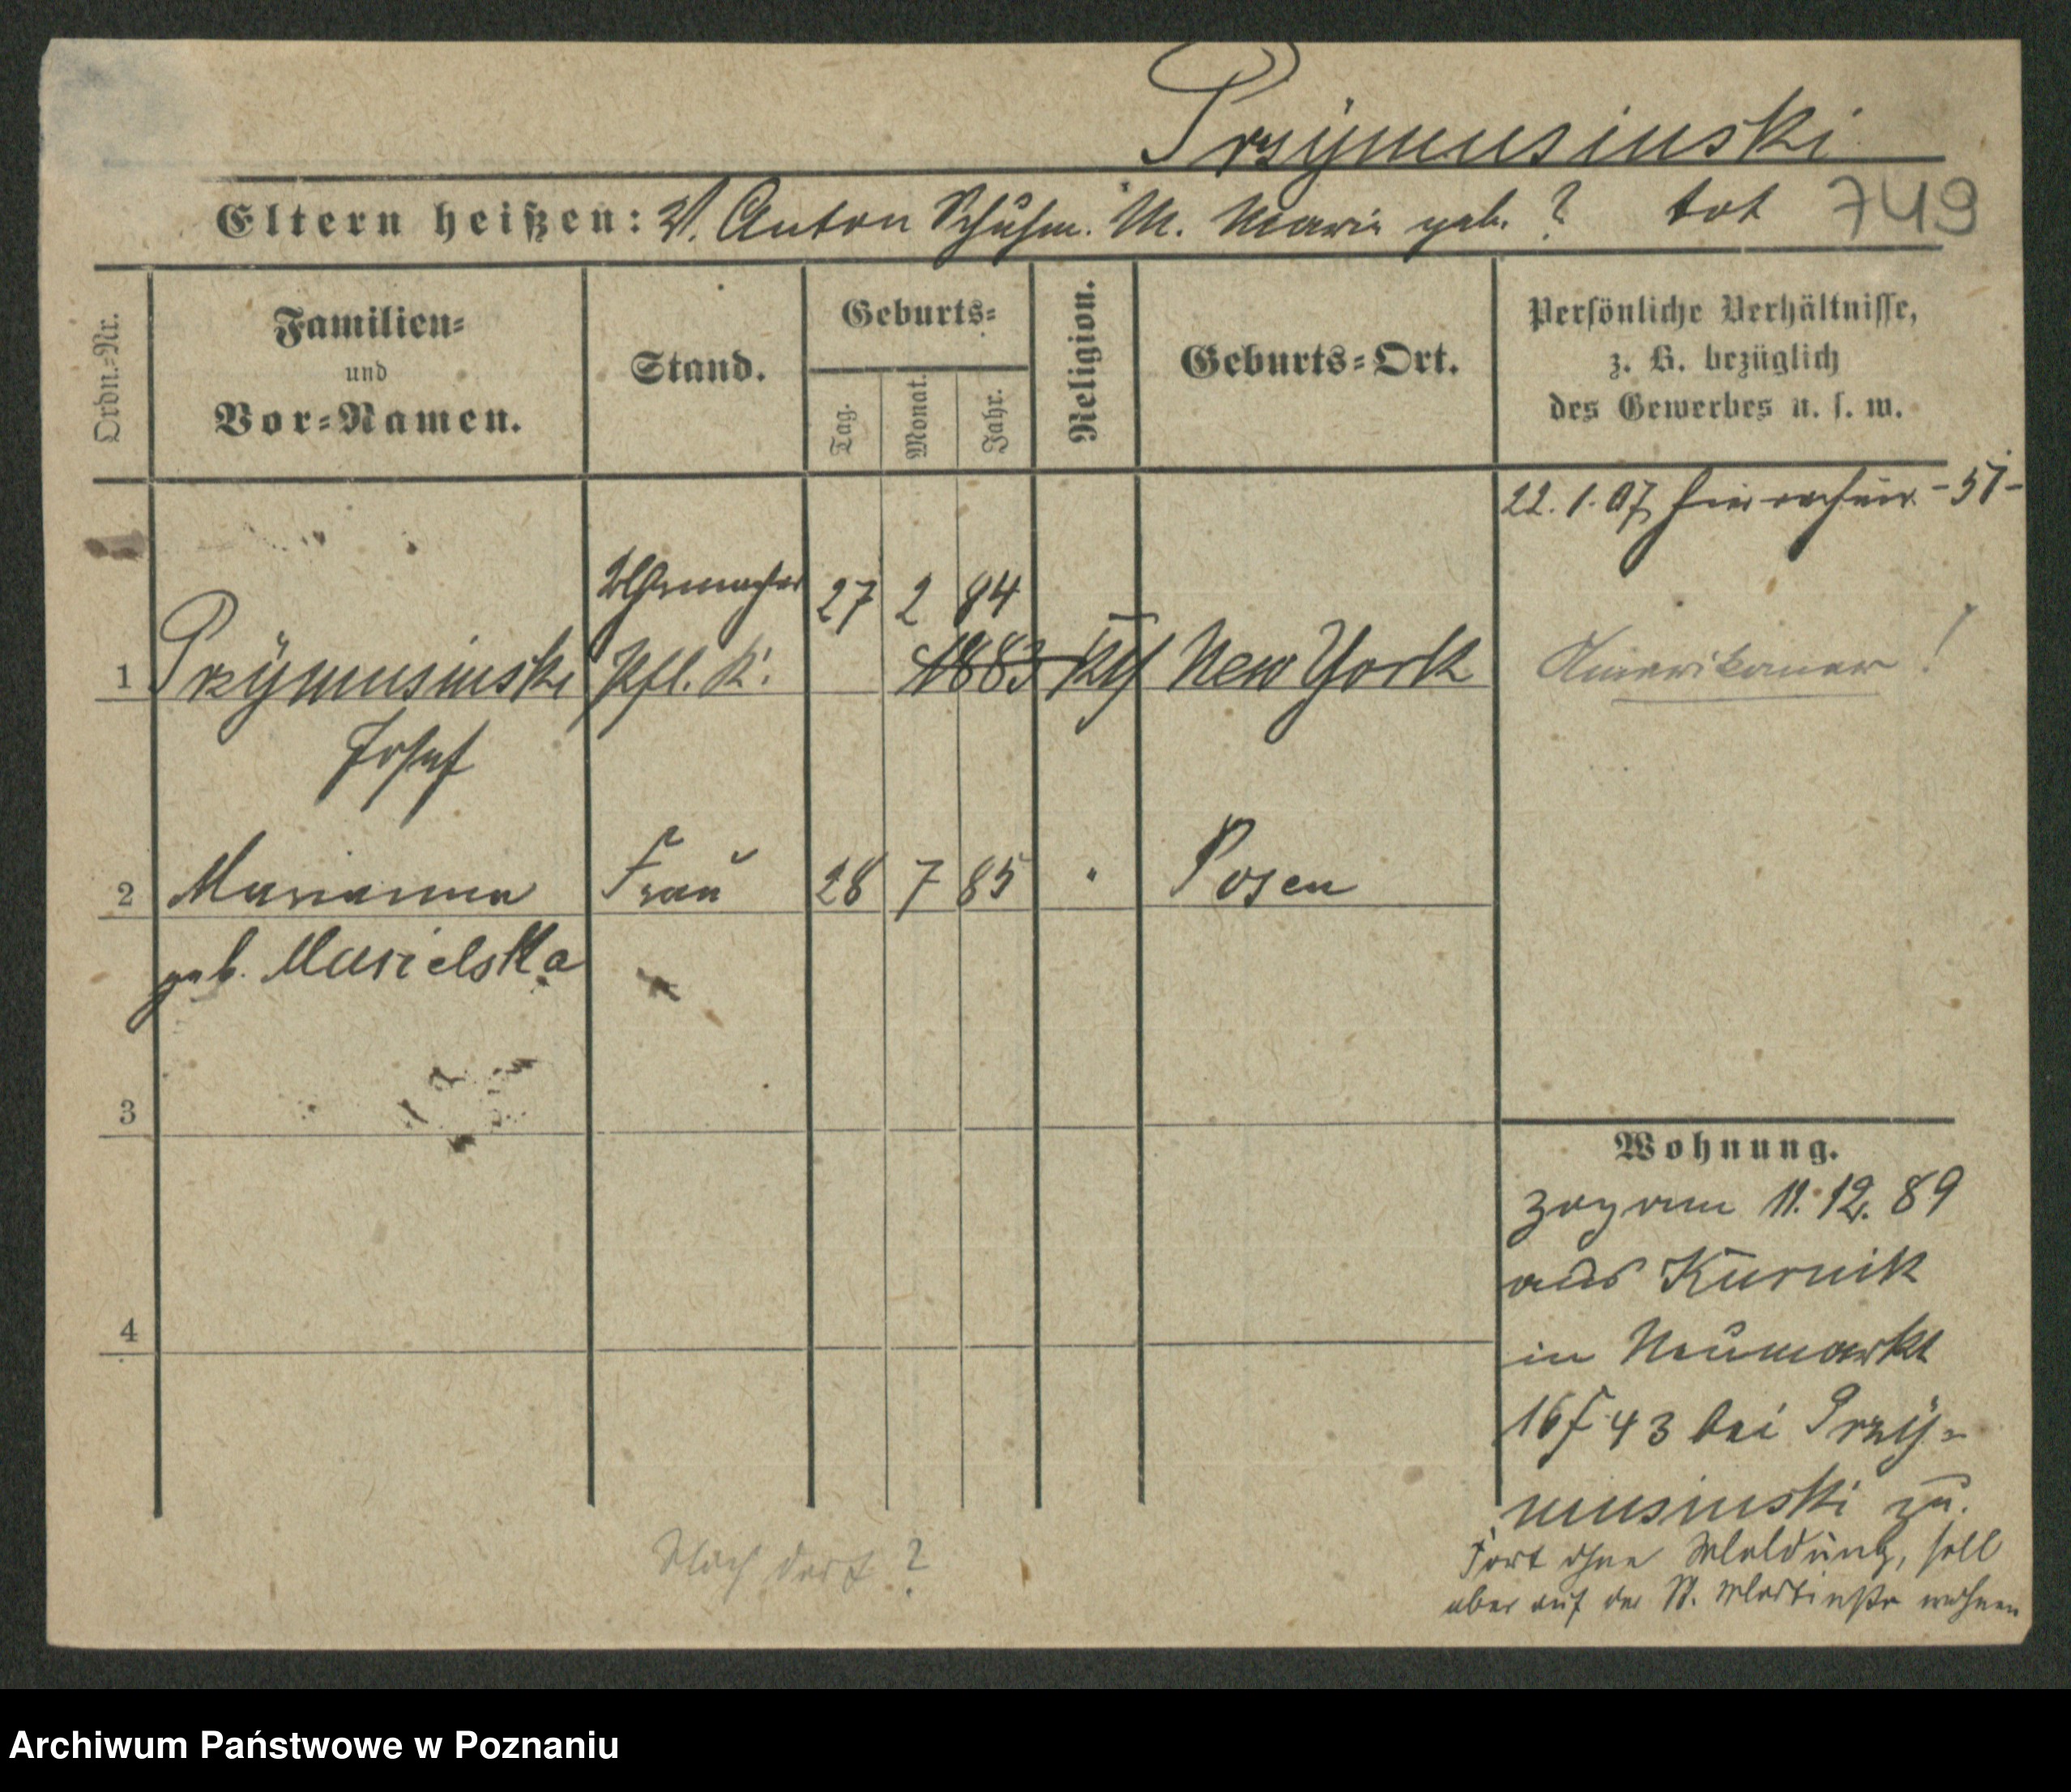 Przÿmusinski
Eltern heißen: V. Anton Schuhm. M. Marie geb. ? tot 749
Ordn.-Nr.
Familien-
und
Vor-Namen.
Stand.
Geburts-
Tag.
Monat.
Jahr.
Religion.
Geburts-Ort.
Persönliche Verhältnisse,
z. B. bezüglich
des Gewerbes u. s. w.
22.1.07 hier -51-
Uhrmacher 27 2 84
1 Przÿmusinski Pfl. K. 1883 kth New York Amerikaner !
Josef
2 Marianna Frau 28 7 85 " Posen
geb. Musielska
3
4
Wohnung.
zog am 11.12.89
aus Kurnik
in Neumarkt
16 f 43 bei Przÿ-
musinski zu.
Fort ohne Meldung, soll
aber auf der St. Martinstr wohnen
Nach dort ?
Archiwum Państwowe w Poznaniu